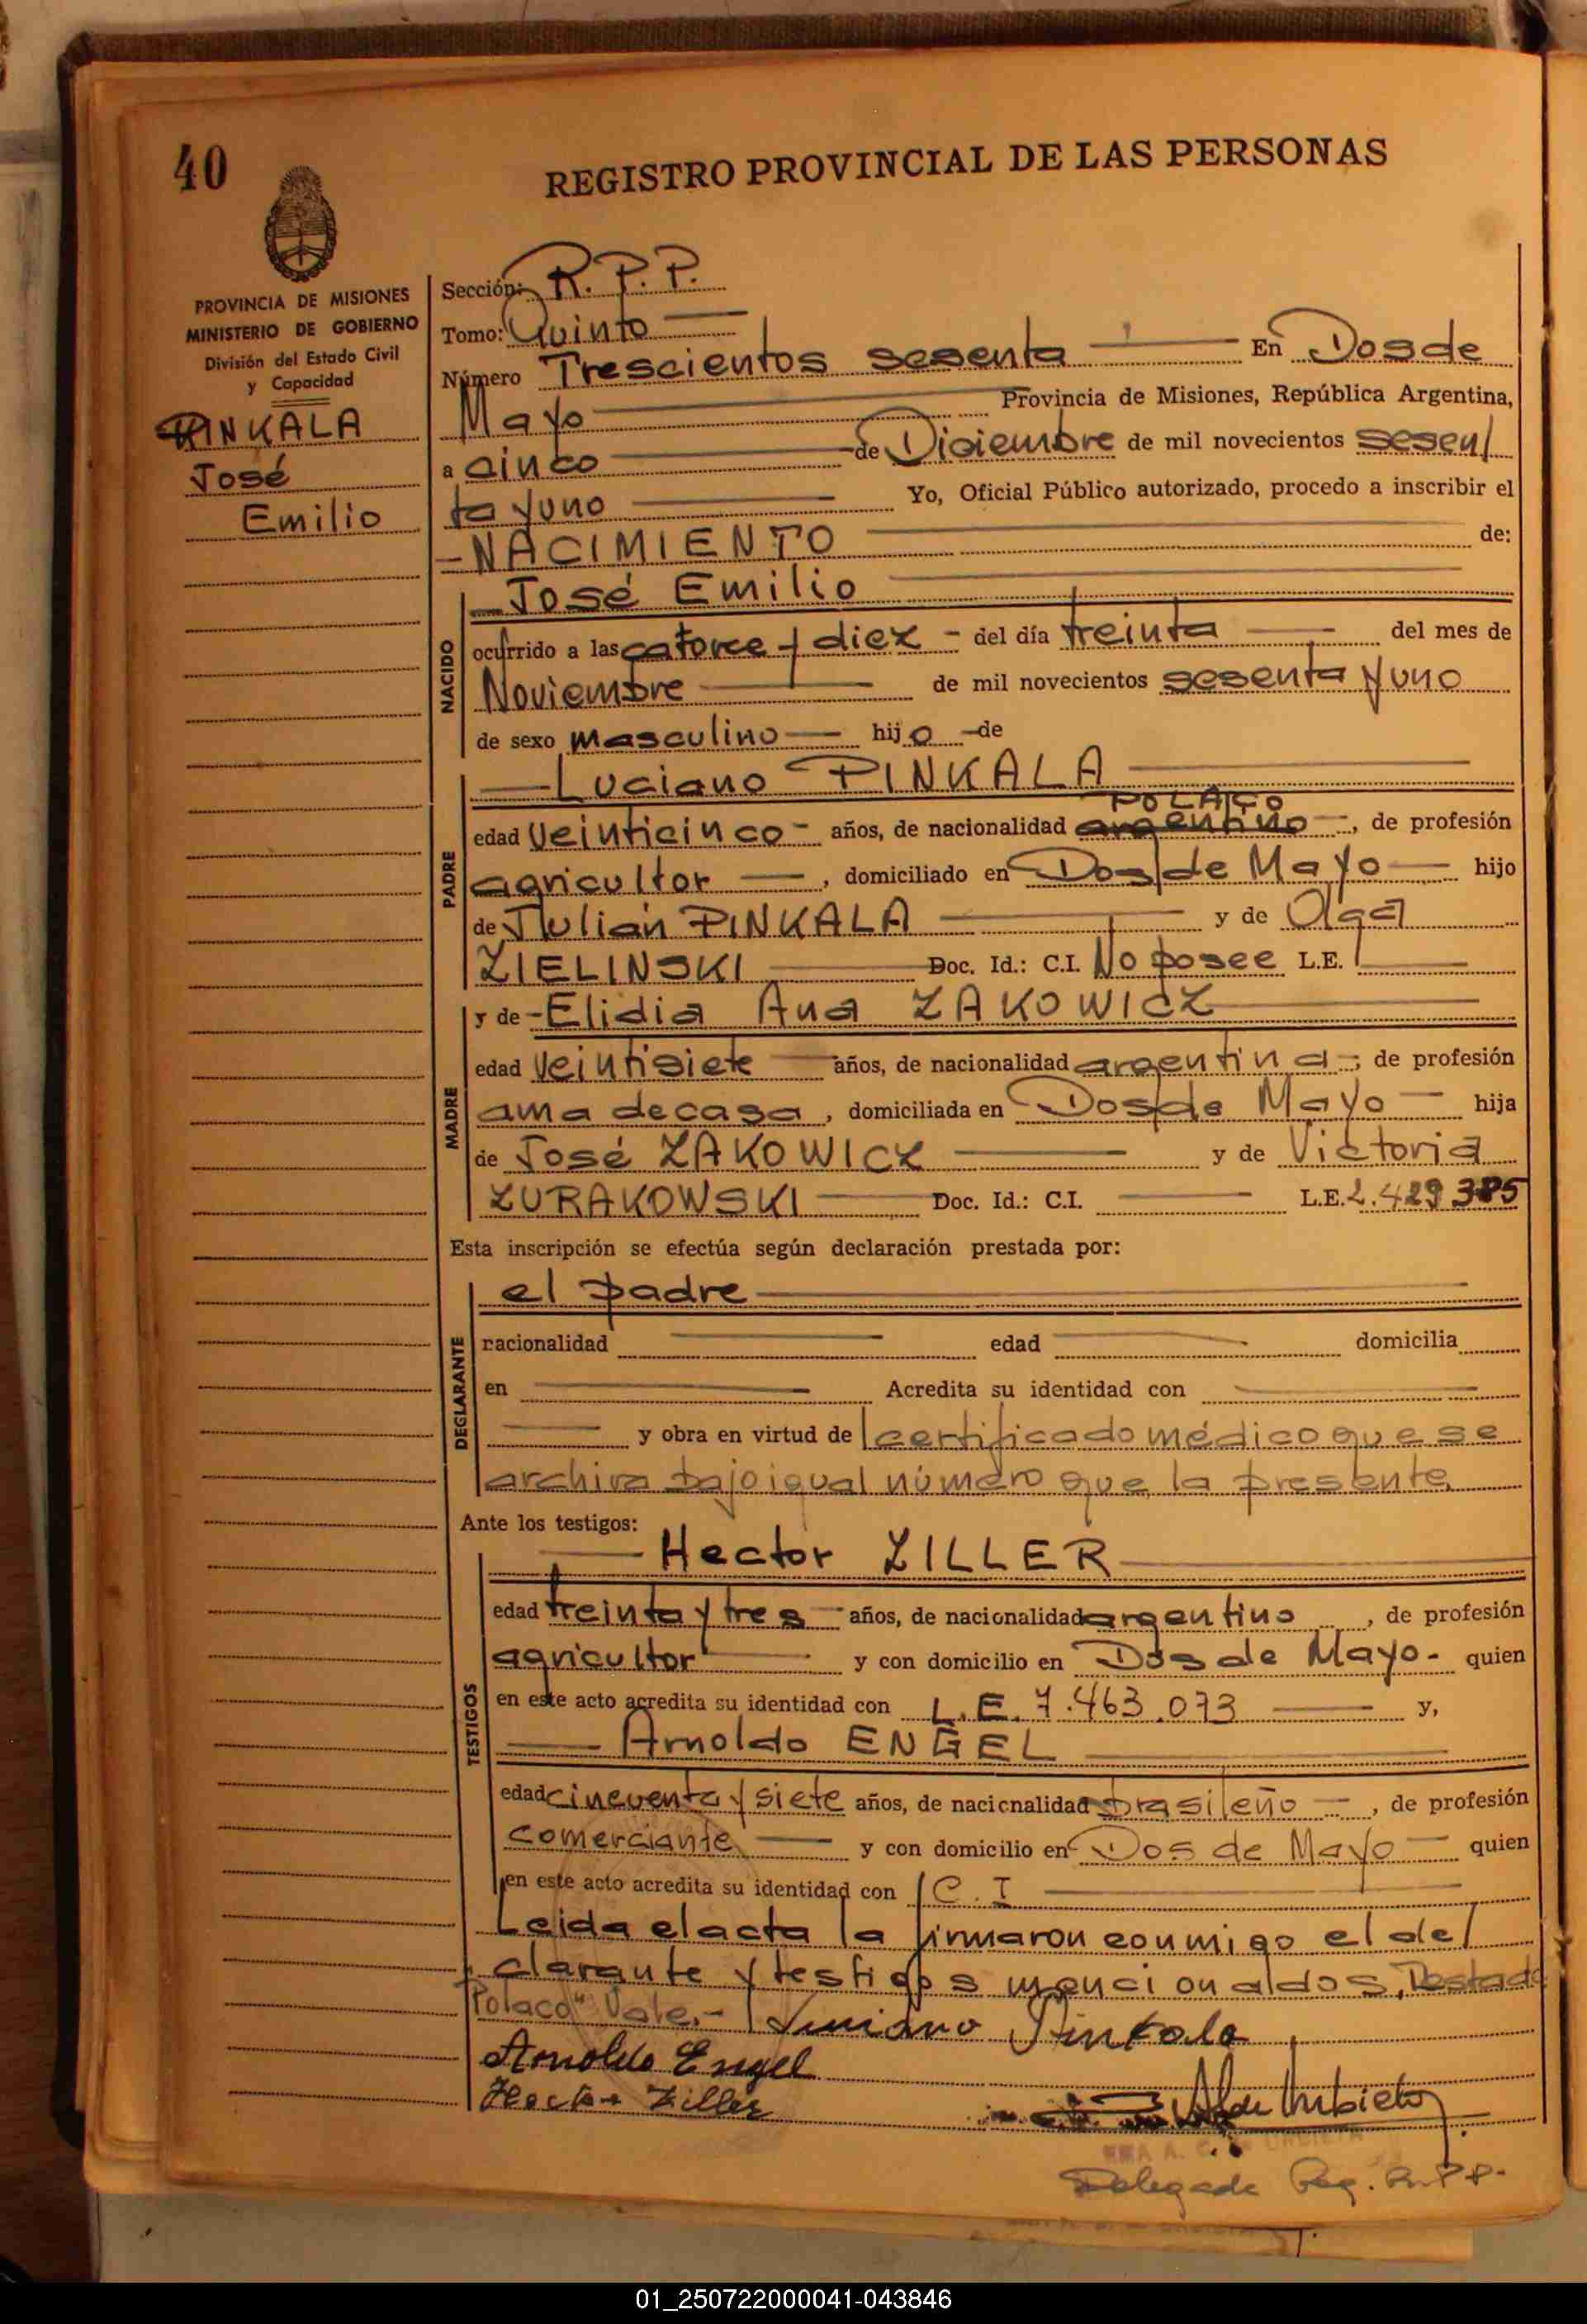 40
REGISTRO PROVINCIAL DE LAS PERSONAS
PROVINCIA DE MISIONES
MINISTERIO DE GOBIERNO
División del Estado Civil
y Capacidad
PINKALA
José
Emilio
Sección: R. P. P.
Tomo: Quinto
Número Trescientos sesenta En Dos de
Mayo Provincia de Misiones, República Argentina,
a cinco de Diciembre de mil novecientos sesen/
ta y uno Yo, Oficial Público autorizado, procedo a inscribir el
-NACIMIENTO de:
José Emilio
NACIDO
ocurrido a las catorce y diez - del día treinta del mes de
Noviembre de mil novecientos sesenta y uno
de sexo masculino hijo de
Luciano PINKALA
POLACO
PADRE
edad veinticinco - años, de nacionalidad argentino, de profesión
agricultor, domiciliado en Dos de Mayo hijo
de Julián PINKALA y de Olga
ZIELINSKI Doc. Id.: C.I. No posee L.E.
y de - Elidia Ana ZAKOWICZ
MADRE
edad veintisiete años, de nacionalidad argentina; de profesión
ama de casa, domiciliada en Dos de Mayo hija
de José ZAKOWICZ y de Victoria
ZURAKOWSKI Doc. Id.: C.I. L.E. 2.429.385
Esta inscripción se efectúa según declaración prestada por:
el padre
DEGLARANTE
racionalidad edad domicilia
en Acredita su identidad con
y obra en virtud de certificado médico que se
archiva bajo igual número que la presente
Ante los testigos:
Hector ZILLER
TESTIGOS
edad treinta y tres - años, de nacionalidad argentino, de profesión
agricultor y con domicilio en Dos de Mayo - quien
en este acto acredita su identidad con L.E. 7.463.073 y,
Arnoldo ENGEL
edad cincuenta y siete años, de nacionalidad brasileño, de profesión
comerciante y con domicilio en Dos de Mayo quien
en este acto acredita su identidad con C. I
Leida el acta la firmaron conmigo el de/
clarante y testigos mencionados, Testado
"Polaco" Vale.- Luciano Pinkala
Arnoldo Engel
Hector Ziller
de Urbieta
Delegada Reg. R.P.P.
01_250722000041-043846